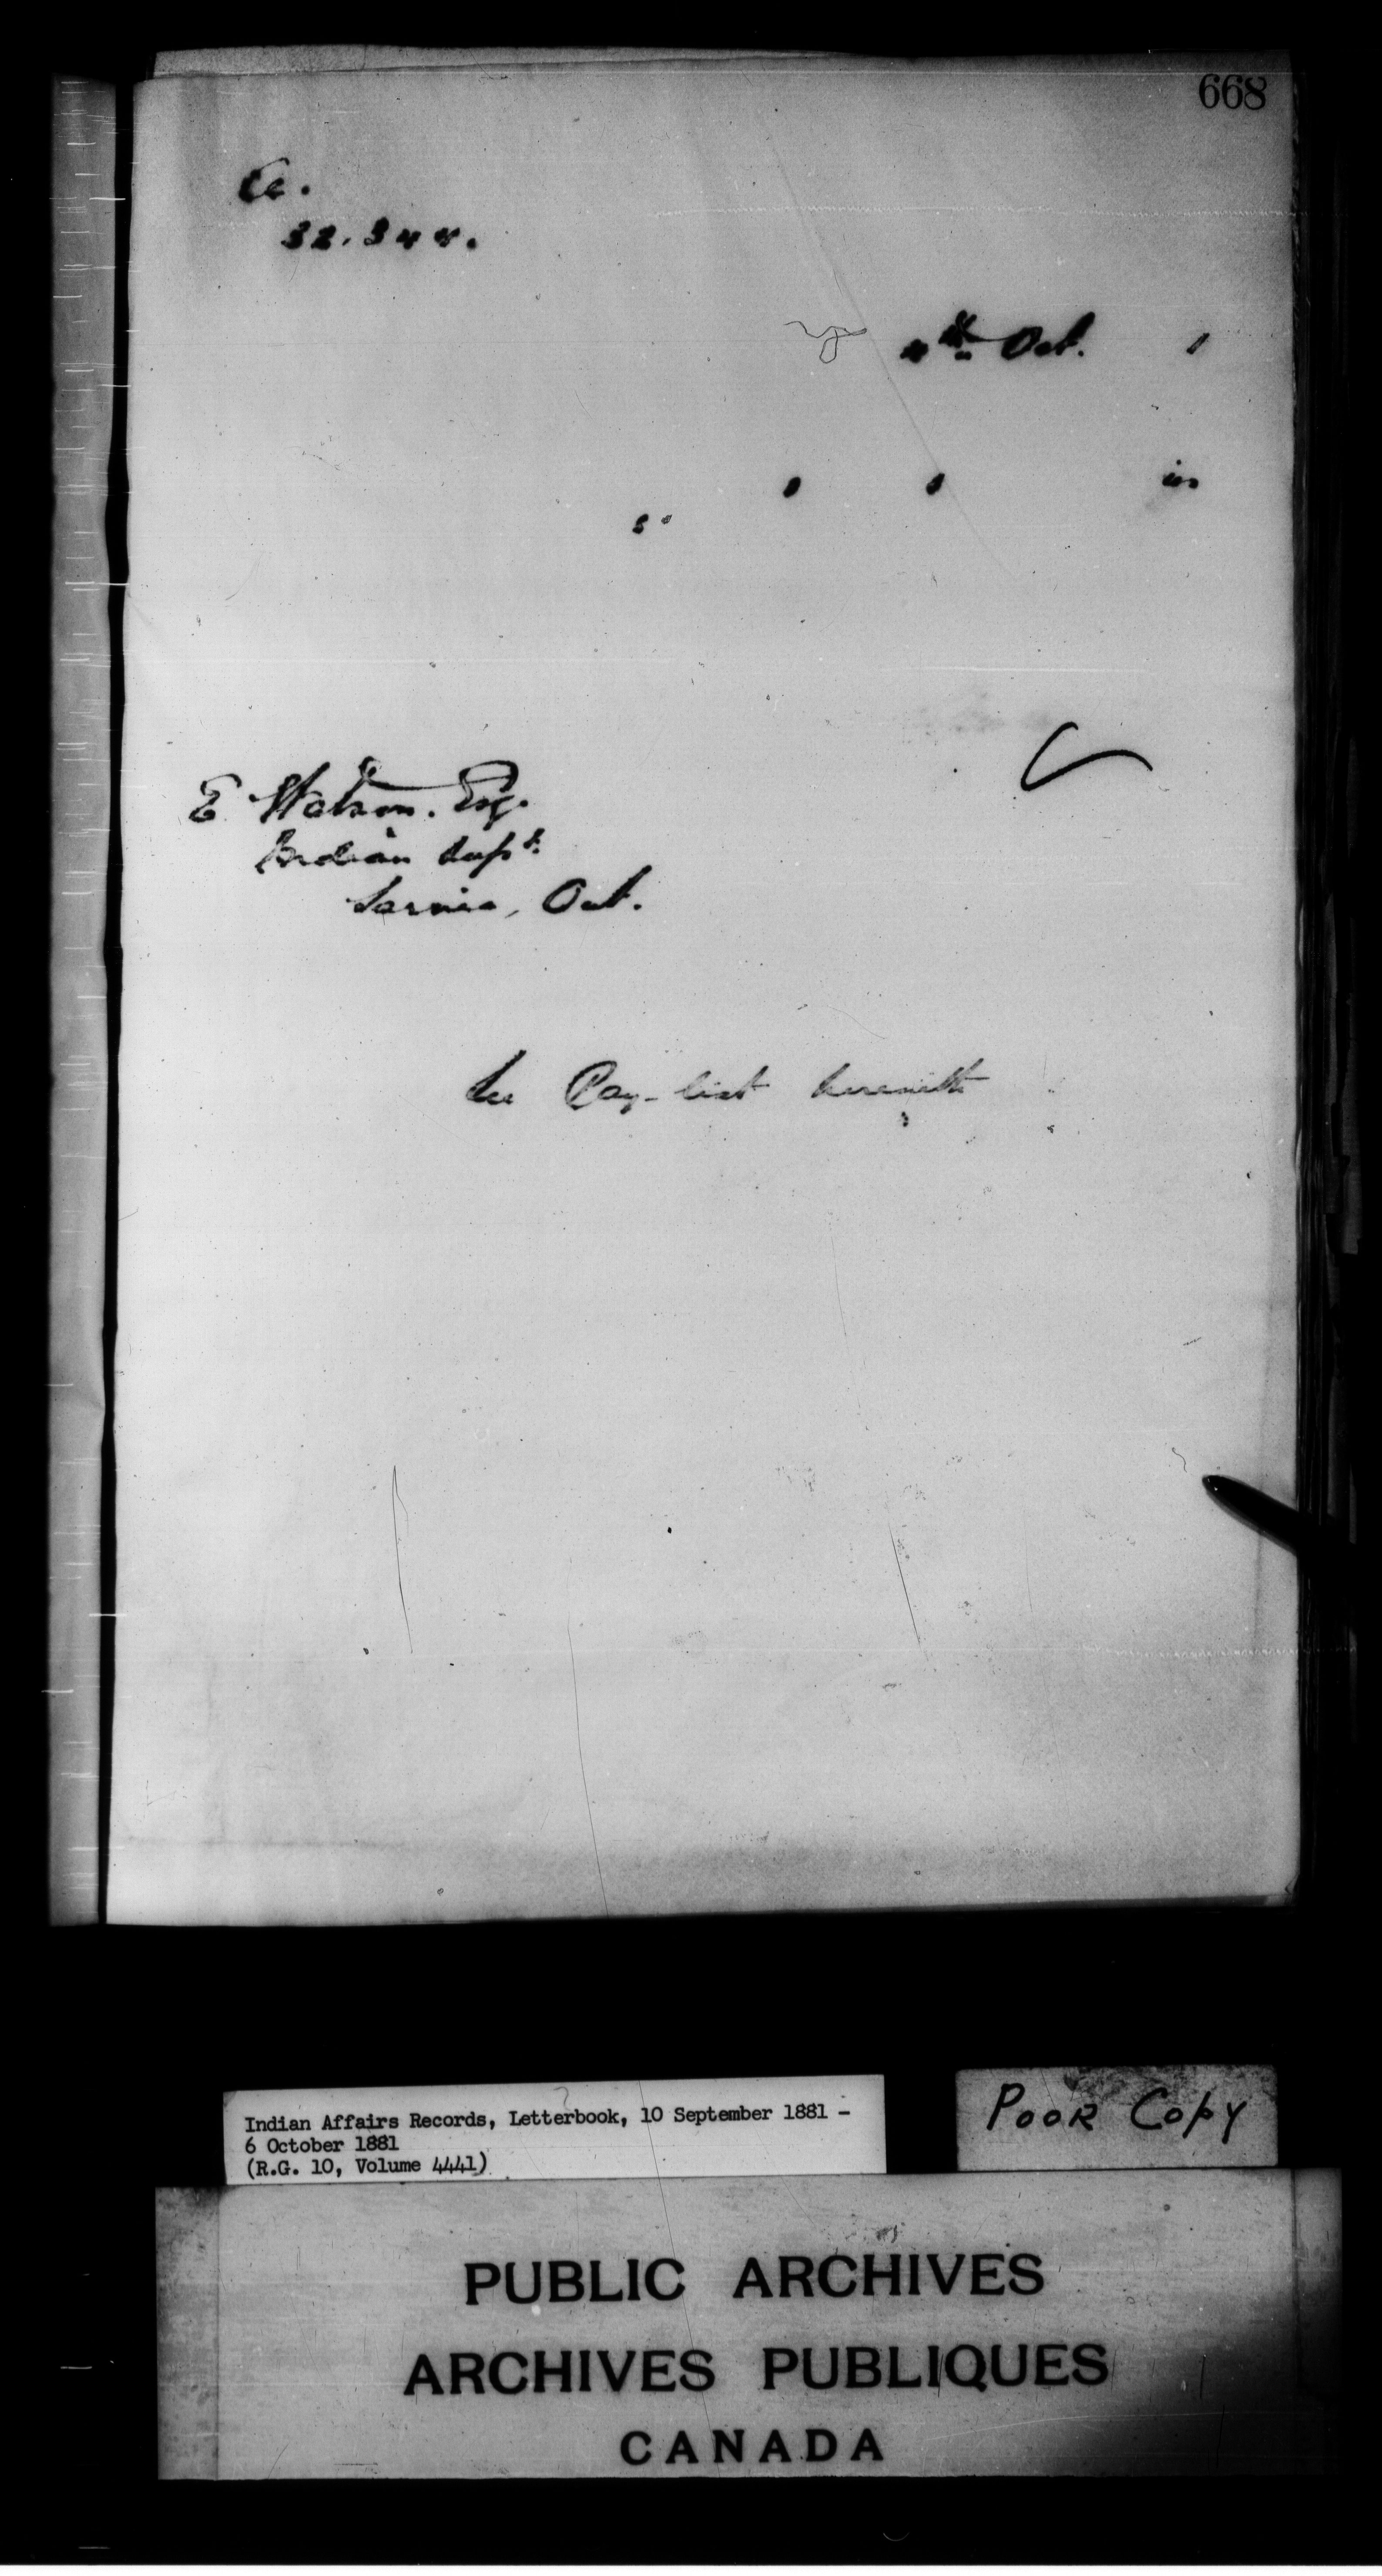 668
32.344.
4th Oct. 1
E Watson. Esq.
Indian Supt.
Sarnia, Ont.
See Pay-list herewith
Indian Affairs Records, Letterbook, 10 September 1881 -
6 October 1881
(R.G. 10, Volume 4441)
POOR COPY
PUBLIC ARCHIVES
ARCHIVES PUBLIQUES
CANADA